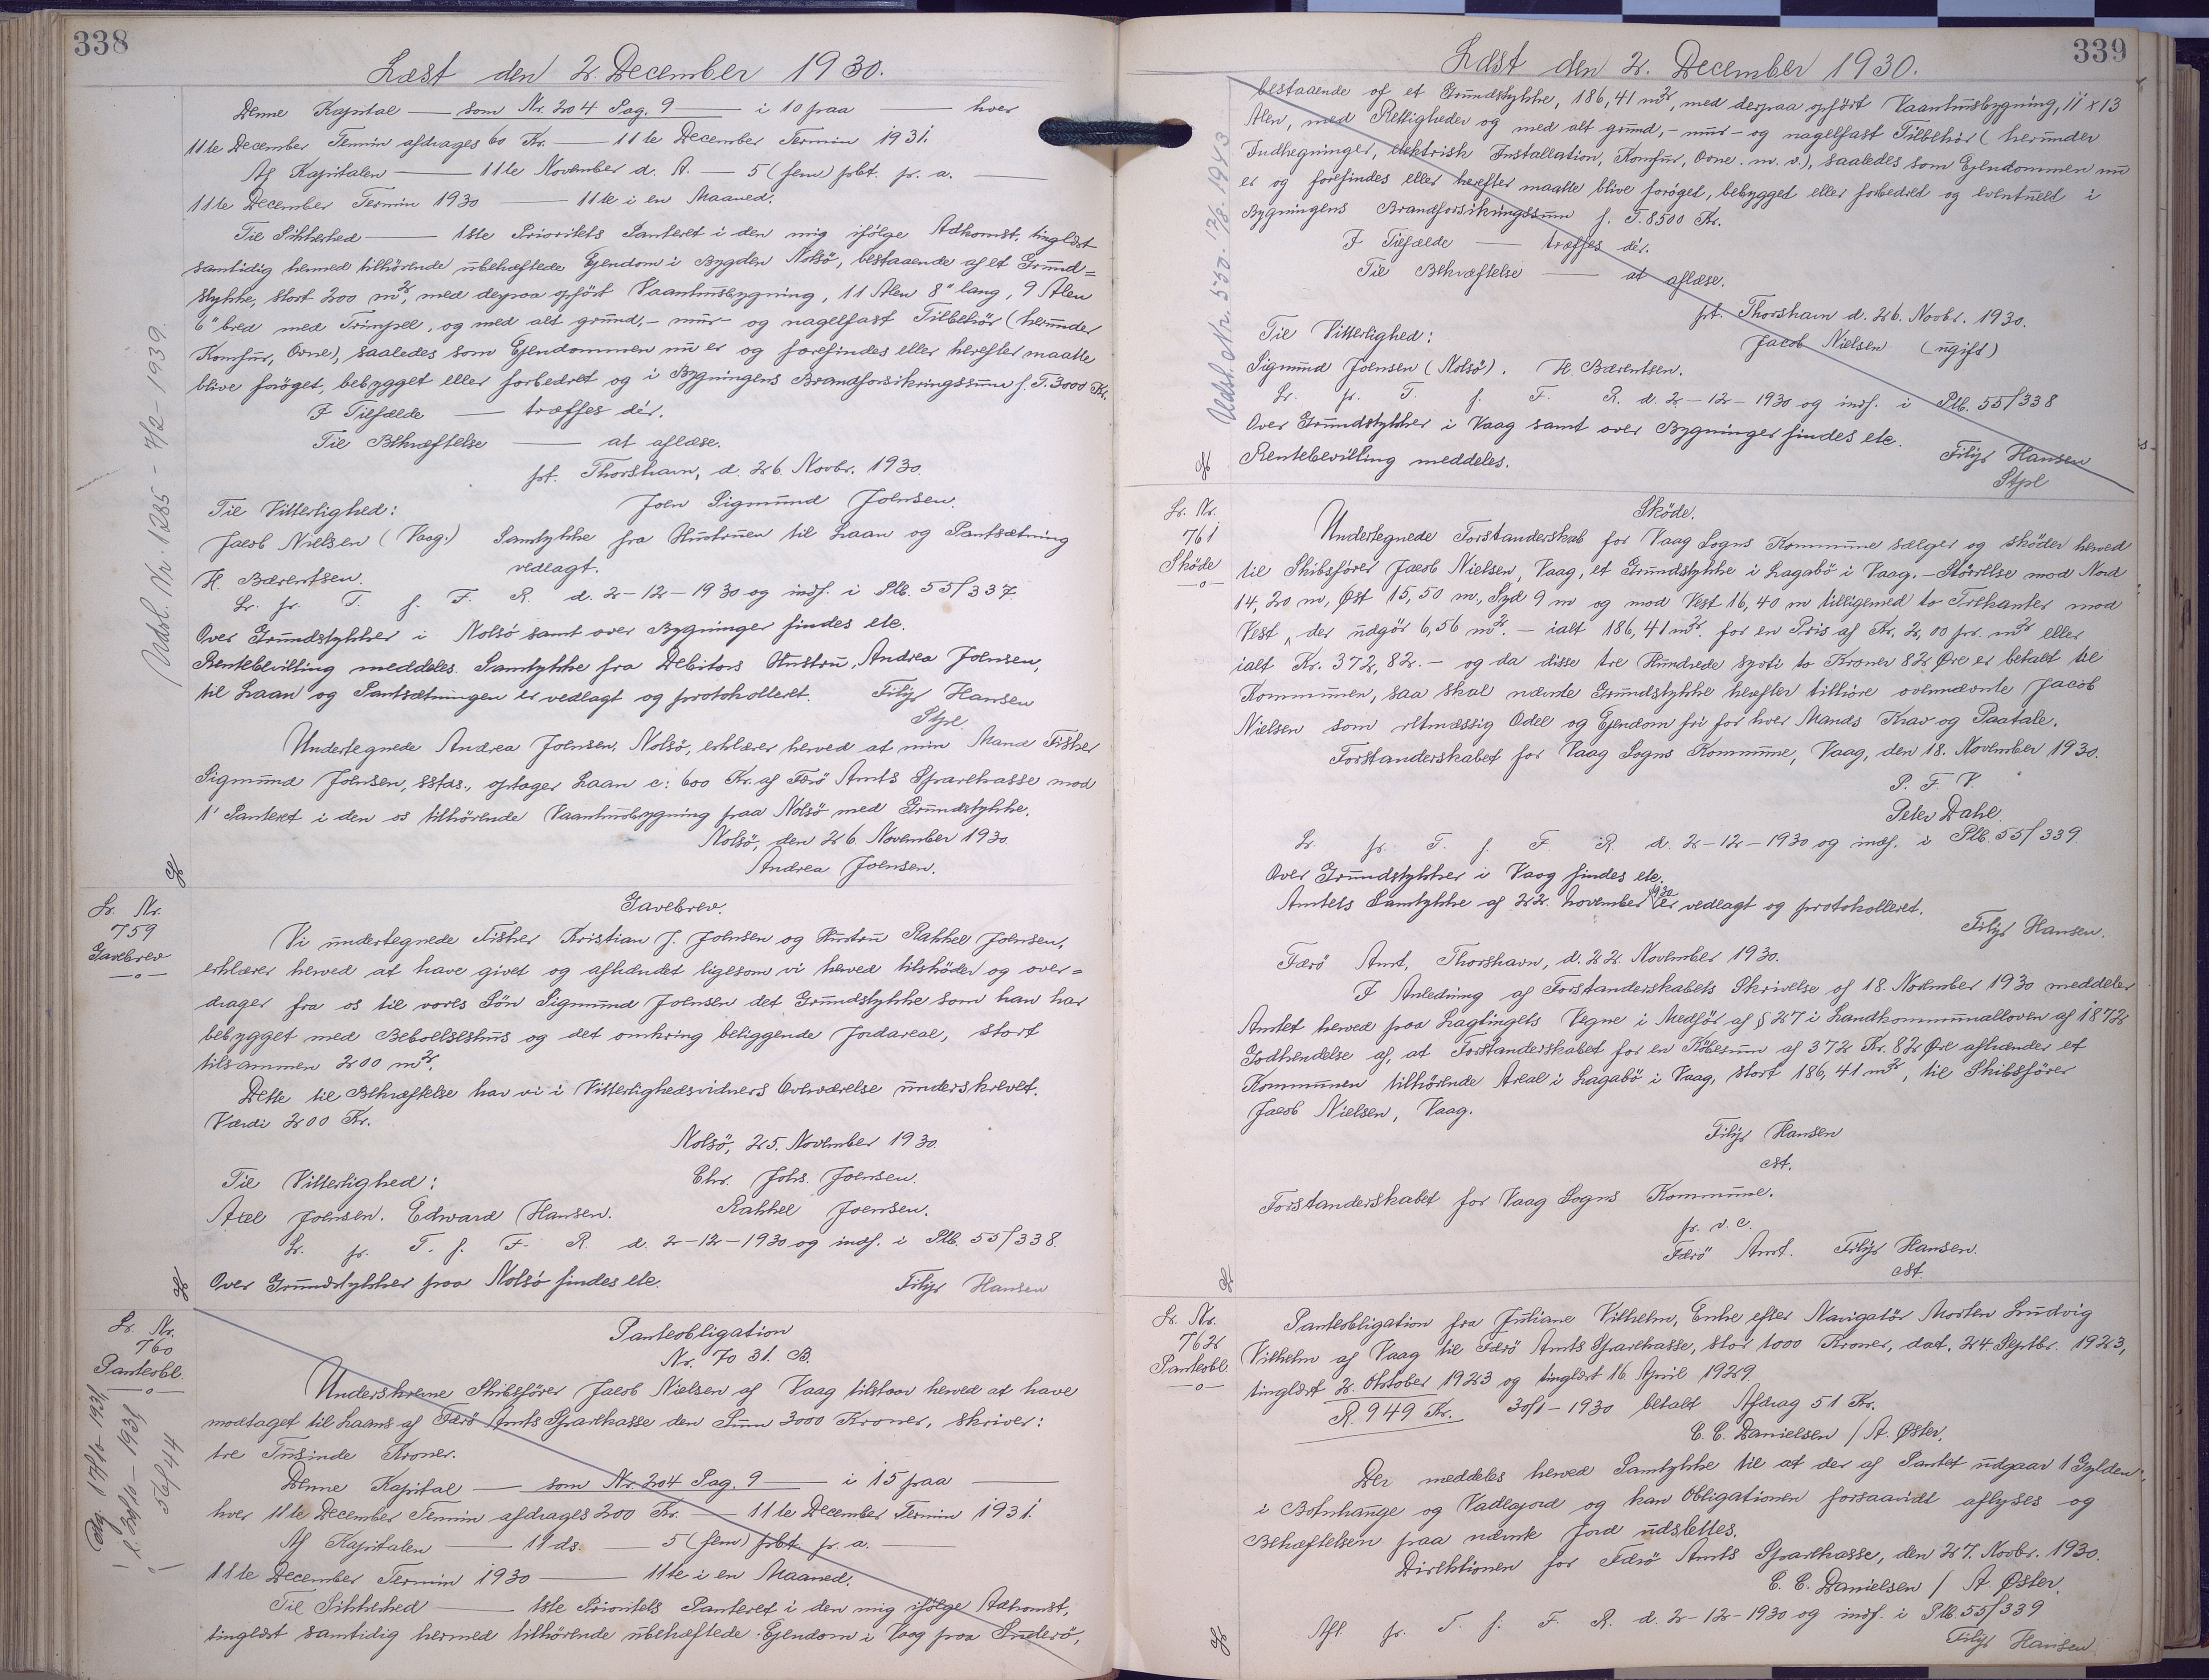 338
Læst den 2. December 1930.
Denne Kapital — som Nr. 204 Pag. 9 — i 10 paa — hver
11te December Termin afdrages 60 Kr. — 11te December Termin 1931.
Af Kapitalen — 11te November d. A. — 5 (fem) pCt. p. a. —
11te December Termin 1930 — 11te i en Maaned.
Til Sikkerhed — 1ste Prioritets Panteret i den mig ifølge Adkomst, tinglæst
samtidig hermed tilhörende ubehæftede Ejendom i Bygden Nolsö, bestaaende af et Grund=
stykke, stort 200 m², med derpaa opført Vaaningsbygning, 11 Alen 8" lang, 9 Alen
6" bred med Trimpel, og med alt grund,- mur- og nagelfast Tilbehör (herunder
Komfur, Ovne), saaledes som Ejendommen nu er og forefindes eller herefter maatte
blive forøget, bebygget eller forbedret og i Bygningens Brandforsikringssum f. T. 3000 Kr.
I Tilfælde — træffes dér.
Til Bekræftelse — at aflæse.
pt. Thorshavn, d. 26. Novbr. 1930.
Joen Sigmund Joensen.
Til Vitterlighed:
Jacob Nielsen (Vaag.) Samtykke fra Hustruen til Laan og Pantsætning
H. Bærentsen. vedlagt.
Lr. pr. T. f. F. R. d. 2-12-1930 og indf. i Plb. 55/337.
Over Grundstykker i Nolsö samt over Bygninger findes etc.
Rentebevilling meddeles. Samtykke fra Debitors Hustru, Andrea Joensen,
til Laan og Pantsætningen er vedlagt og protokolleret. Filip Hansen
Stpl.
Undertegnede Andrea Joensen, Nolsö, erklærer herved at min Mand Fisker
Sigmund Joensen, sstds., optager Laan c: 600 Kr. af Færö Amts Sparekasse mod
1' Panteret i den os tilhörende Vaaningsbygning paa Nolsö med Grundstykke.
Nolsö, den 26. November 1930.
Andrea Joensen.
Lr. Nr.
759
Gavebrev
Gavebrev.
Vi undertegnede Fisker Kristian J. Joensen og Hustru Rakkel Joensen,
erklærer herved at have givet og afhændet ligesom vi herved tilsköder og over=
drager fra os til vores Sön Sigmund Joensen det Grundstykke som han har
bebygget med Beboelseshus og det omkring beliggende Jordareal, stort
tilsammen 200 m².
Dette til Bekræftelse har vi i Vitterlighedsvidners Overværelse underskrevet.
Værdi 200 Kr.
Nolsö, 25. November 1930.
Til Vitterlighed: Chr. Johs. Joensen.
Axel Joensen. Edward Hansen. Rakkel Joensen.
Lr. pr. T. f. F. R. d. 2-12-1930 og indf. i Plb. 55/338.
Over Grundstykker paa Nolsö findes etc. Filip Hansen
Lr. Nr.
760
Panteobl.
Panteobligation
Nr. 7031. B.
Underskrevne Skibsförer Jacob Nielsen af Vaag tilstaar herved at have
modtaget til Laans af Færö Amts Sparekasse den Sum 3000 Kroner, skriver:
tre Tusinde Kroner.
Denne Kapital — som Nr. 204 Pag. 9 — i 15 paa —
hver 11te December Termin afdrages 200 Kr. — 11te December Termin 1931.
Af Kapitalen — 11 ds. — 5 (fem) pCt. p. a. —
11te December Termin 1930 — 11te i en Maaned.
Til Sikkerhed — 1ste Prioritets Panteret i den mig ifølge Adkomst,
tinglæst samtidig hermed tilhörende ubehæftede Ejendom i Vaag paa Suderö,
Udsl. Nr. 1285 - 7/2 - 1939.
339
Læst den 2. December 1930.
bestaaende af et Grundstykke, 186,41 m², med derpaa opfört Vaaningsbygning, 11 x 13
Alen, med Rettigheder og med alt grund,- mur- og nagelfast Tilbehör (herunder
Indhegninger, elektrisk Installation, Komfur, Ovne m. v.), saaledes som Ejendommen nu
er og forefindes eller herefter maatte blive forøget, bebygget eller forbedret og eventuelt i
Bygningens Brandforsikringssum f. T. 8500 Kr.
I Tilfælde — træffes dér.
Til Bekræftelse — at aflæse.
pt. Thorshavn d. 26. Novbr. 1930.
Til Vitterlighed: Jacob Nielsen (ugift)
Sigmund Joensen (Nolsö). H. Bærentsen.
Lr. pr. T. f. F. R. d. 2-12-1930 og indf. i Plb. 55/338
Over Grundstykker i Vaag samt over Bygninger findes etc.
Rentebevilling meddeles. Filip Hansen
Stpl
Udsl. Nr. 550. 13/8. 1943
Lr. Nr.
761
Sköde
Sköde.
Undertegnede Forstanderskab for Vaag Sogns Kommune sælger og sköder herved
til Skibsförer Jacob Nielsen, Vaag, et Grundstykke i Lagabö i Vaag. - Störrelse mod Nord
14,20 m, Øst 15,50 m., Syd 9 m og mod Vest 16,40 m tilligemed to Trekanter mod
Vest, der udgör 6,56 m². - ialt 186,41 m². for en Pris af Kr. 2,00 pr. m² eller
ialt Kr. 372,82. - og da disse tre Hundrede syoti to Kroner 82 Øre er betalt til
Kommunen, saa skal nævnte Grundstykke herefter tilhöre ovennævnte Jacob
Nielsen som retmæssig Odel og Ejendom fri for hver Mands Krav og Paatale.
Forstanderskabet for Vaag Sogns Kommune, Vaag, den 18. November 1930.
P. F. V.
Peter Dahl.
Lr. pr. T. f. F. R. d. 2-12-1930 og indf. i Plb. 55/339
Over Grundstykker i Vaag findes etc.
Amtets Samtykke af 22. November 1930 er vedlagt og protokolleret.
Filip Hansen.
Færö Amt, Thorshavn, d. 22. November 1930.
I Anledning af Forstanderskabets Skrivelse af 18. November 1930 meddeler
Amtet herved paa Lagtingets Vegne i Medför af § 27 i Landkommunalloven af 1872
Godkendelse af, at Forstanderskabet for en Købesum af 372 Kr. 82 Øre afhænder et
Kommunen tilhörende Areal i Lagabö i Vaag, stort 186,41 m², til Skibsförer
Jacob Nielsen, Vaag.
Filip Hansen
cst.
Forstanderskabet for Vaag Sogns Kommune.
p. v. c.
Færö Amt. Filip Hansen.
cst.
Lr. Nr.
762
Panteobl.
Panteobligation fra Juliane Vilhelm, Enke efter Navigatör Morten Ludvig
Vilhelm af Vaag til Færö Amts Sparekasse, stor 1000 Kroner, dat. 24. Septbr. 1923,
tinglæst 2. Oktober 1923 og tinglæst 16 April 1929.
R. 949 Kr. 30/1-1930 betalt Afdrag 51 Kr.
C. C. Danielsen / A. Øster.
Der meddeles herved Samtykke til at der af Pantet udgaar 1 Gylden
i Bofnhauge og Vadlajord og kan Obligationen forsaavidt aflyses og
Behæftelsen paa nævnte Jord udslettes.
Direktionen for Færö Amts Sparekasse, den 27. Novbr. 1930.
C. C. Danielsen / A. Øster.
Afl. pr. T. f. F. R. d. 2-12-1930 og indf. i Plb. 55/339
Filip Hansen